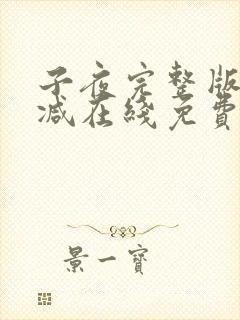 子夜完整版
减在线免费
景一宝